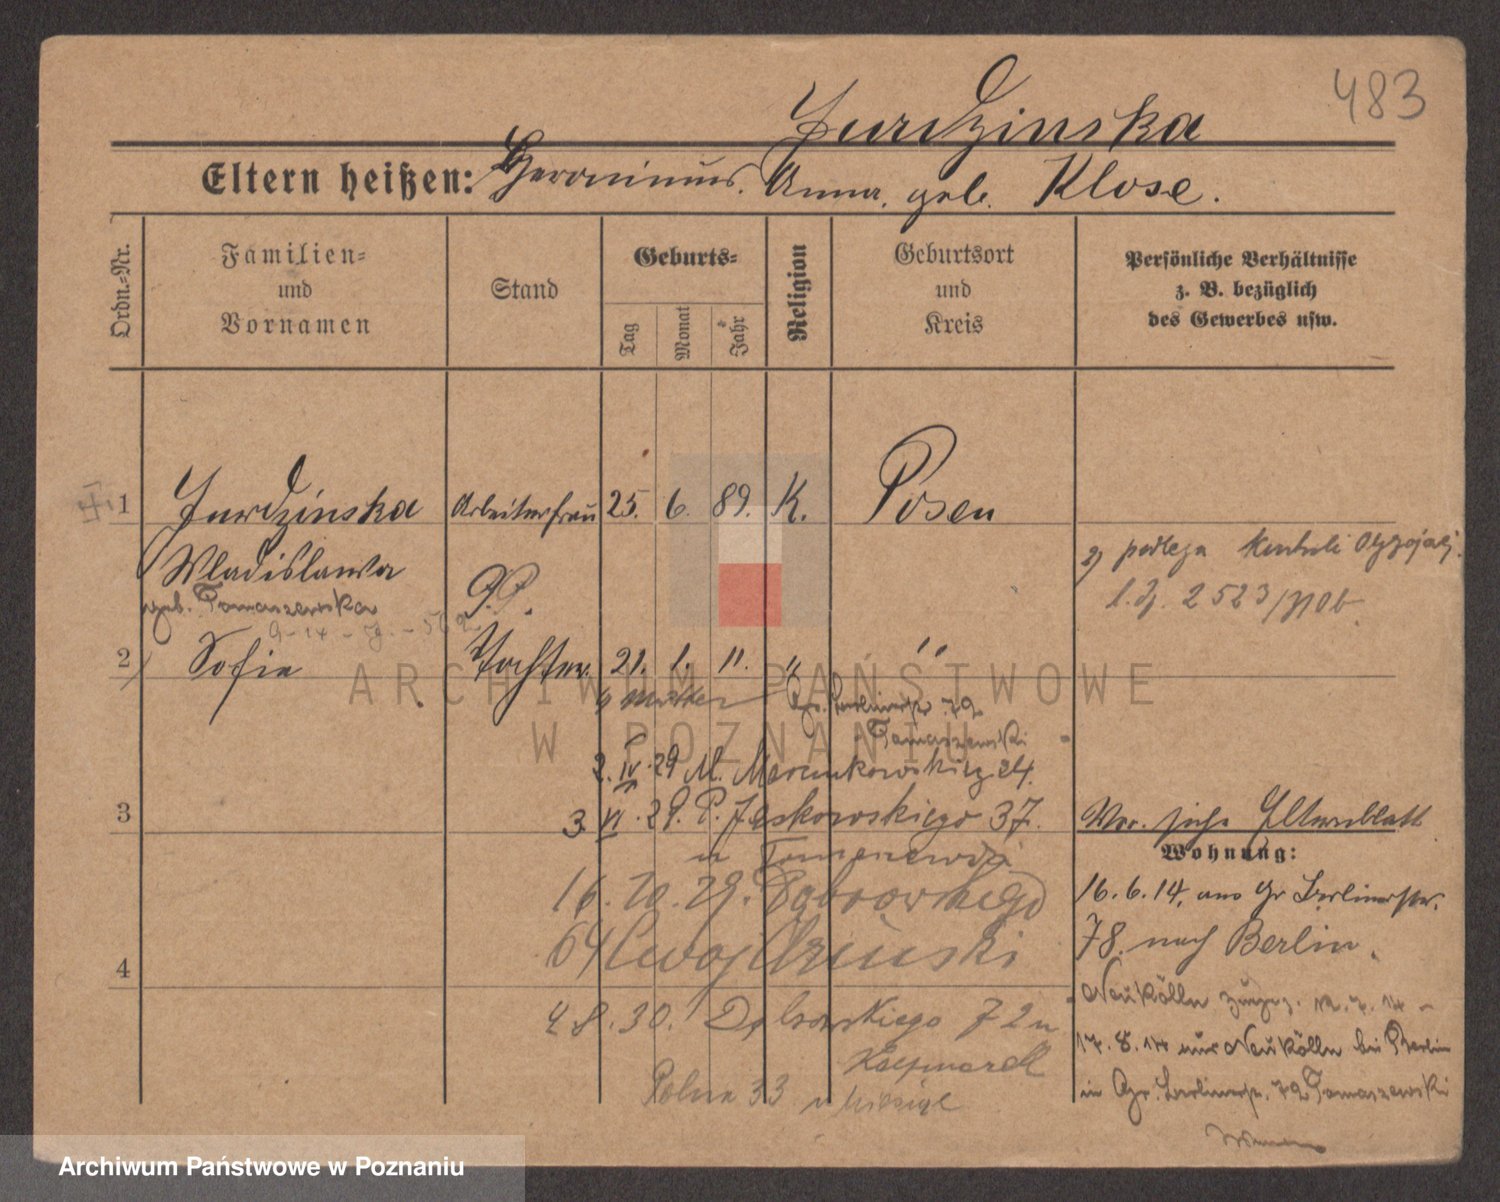 483
Jurdzinska
Eltern heißen: Heronimus. Anna, geb. Klose.
Ordn.-Nr.
Familien-
und
Vornamen
Stand
Geburts-
Tag
Monat
Jahr
Religion
Geburtsort
und
Kreis
Persönliche Verhältnisse
z. B. bezüglich
des Gewerbes usw.
1 Jurdzinska Arbeiterfrau 25. 6. 89. K. Posen
Wladislawa
geb. Tomaszewska
2) podlega kontroli
l. dz. 2523/
2 Sofia Tochter 21. 1. 11. " "
Gr. Berlinerstr. 79
Tomaszewski
2. IV. 29 M. Marcinkowskiego 24.
3
3 VI. 29. P. Jackowskiego 37.
u
Vor. siehe Elternblatt
Wohnung:
16. 10. 29. Dąbrowskiego
64
16. 6. 14. aus Gr Berlinerstr.
78. nach Berlin.
4
4 8. 30. Dąbrowskiego 72 u
Neukölln 12. 7. 14
17. 8. 14 aus Neukölln bei Berlin
in Gr. Berlinerstr. 79 Tomaszewski
Polna 33 u
ARCHIWUM PAŃSTWOWE
W POZNANIU
Archiwum Państwowe w Poznaniu